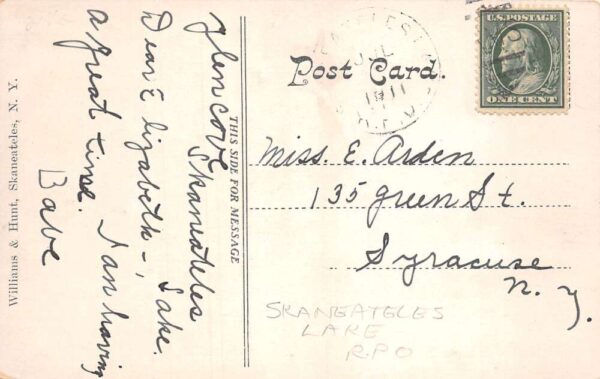 Williams & Hunt, Skaneateles, N. Y.
THIS SIDE FOR MESSAGE
Glencove
Skaneateles
Lake.
Dear Elizabeth -,
I am having
a great time.
Babe
Post Card.
JUL
1911
R.P.O
U.S. POSTAGE
ONE CENT
Miss. E. Arden
135 Green St.
Syracuse
N. Y.
SKANEATELES
LAKE
RPO